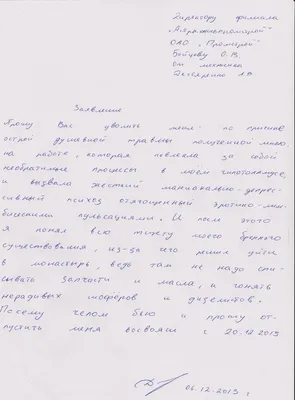 Директору филиала
ОАО „Промстрой"
Бойцову О.В.
от механика
Заявление
Прошу Вас уволить меня по причине
острой душевной травмы полученной мною
на работе, которая повлекла за собой
необратимые процессы в моем гипоталамусе,
и вызвала жесткий маниакально-депрес-
сивный психоз отягощенный эротико-
пульсациями. И после этого
я понял всю тщету моего бренного
существования, из-за чего решил уйти
в монастырь, ведь там не надо спи-
сывать запчасти и масла, и гонять
нерадивых шофёров и дизелистов.
Потому челом бью и прошу от-
пустить меня восвояси с 20.12.2013
06.12.2013 г